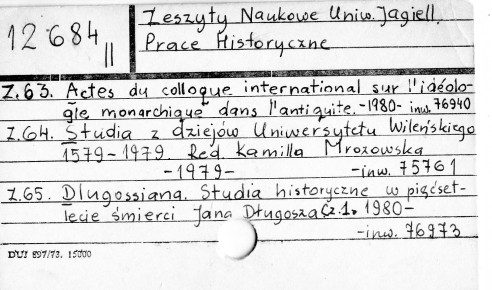 12684 II
Zeszyty Naukowe Uniw. Jagiell.
Prace Historyczne
Z.63. Actes du colloque international sur l'idéolo-
gie monarchique dans l'antiquite. -1980- inw. 76940
Z.64. Studia z dziejów Uniwersytetu Wileńskiego
1579-1979. Red. Kamilla Mrozowska
-1979- -inw. 75761
Z.65. Dlugossiana. Studia historyczne w pięćset-
lecie śmierci Jana Długosza Cz.1. 1980-
-inw. 76973
DUJ 897/73. 15000